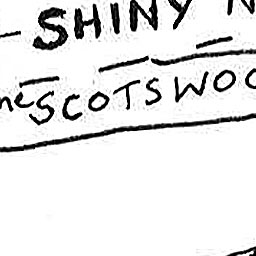 SHINY N
ne SCOTSWOO